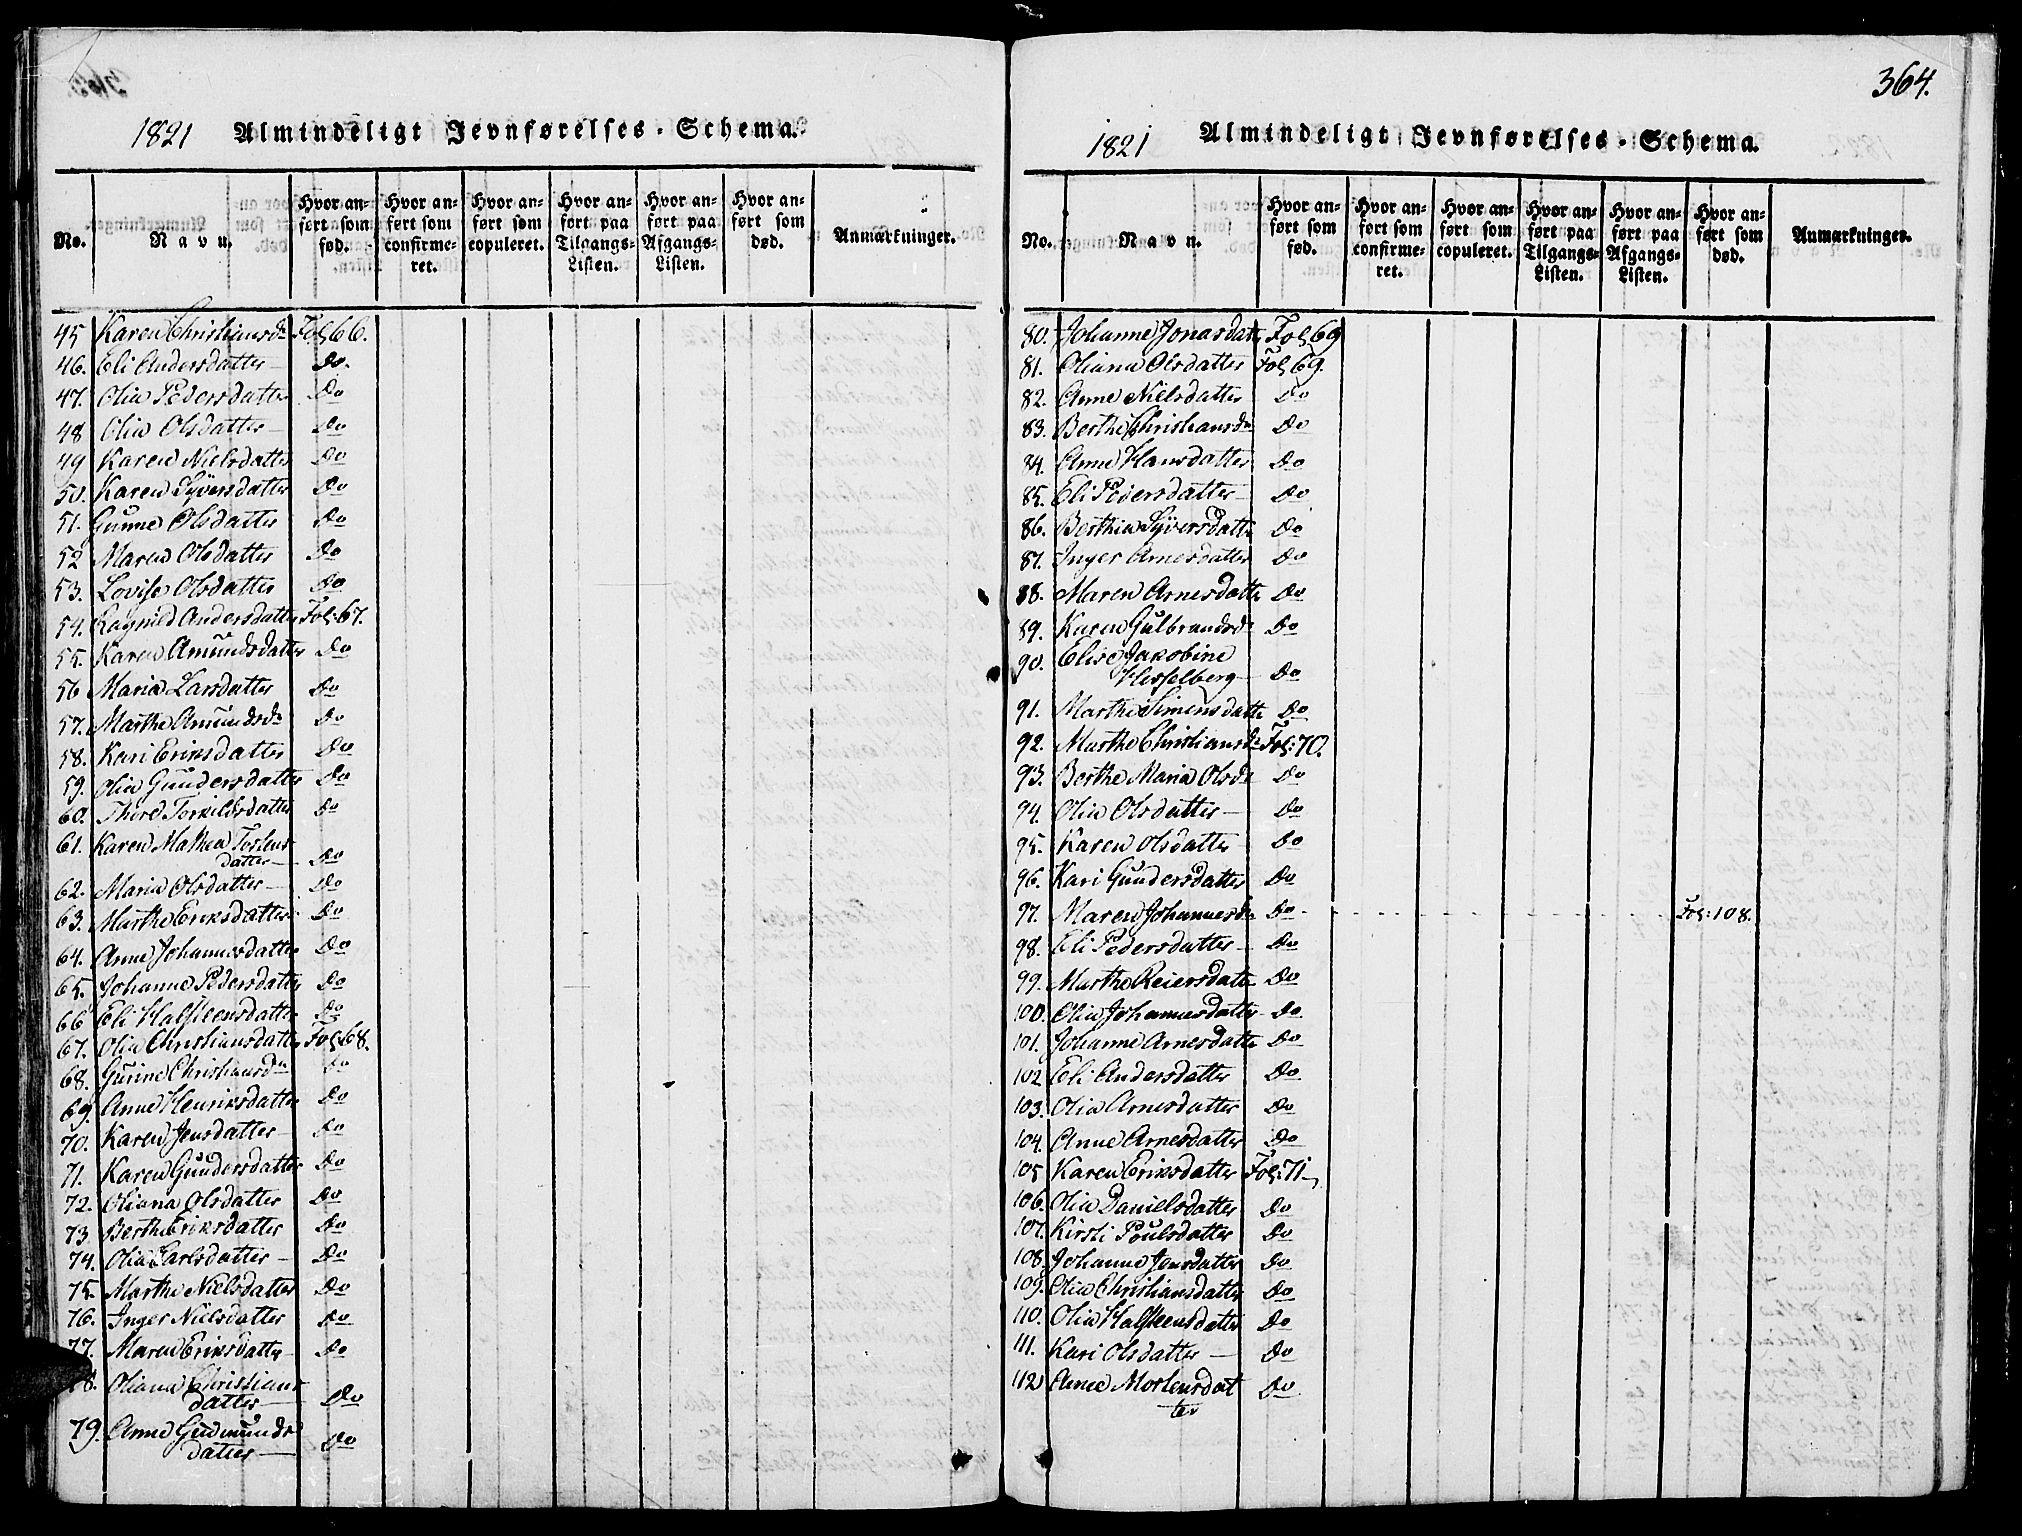 364.
1821 Almindeligt Jevnførelses-Schema.
No.
Navn.
Hvor an-
ført som
fød.
Hvor an-
ført som
confirme-
ret.
Hvor an-
ført som
copuleret.
Hvor an-
ført paa
Tilgangs-
Listen.
Hvor an-
ført paa
Afgangs-
Listen.
Hvor an-
ført som
død.
Anmærkninger.
45 Karen Christiansdr Fol: 66.
46. Eli Andersdatter Do.
47. Olia Pedersdatter Do
48 Olia Olsdatter Do
49 Karen Nielsdatter Do
50. Karen Syversdatter Do
51. Gunne Olsdatter Do
52 Maren Olsdatter Do
53. Lovise Olsdatter Do
54. Ragnild Andersdatter Fol: 67.
55. Karen Amundsdatter Do
56 Maria Larsdatter Do
57. Marthe Amundsdr Do
58. Kari Eriksdatter Do
59. Olia Gundersdatter Do
60. Thore Torkildsdatter Do
61. Karen Mathea Torstens
datter Do
62. Maria Olsdatter Do
63. Marthe Eriksdatter Do
64. Anne Johannesdatter Do
65. Johanne Pedersdatter Do
66 Eli Halsteensdatter Do
67. Olia Christiansdatter Fol: 68.
68. Gurine Christiansdr Do
69. Anne Henriksdatter Do
70. Karen Jensdatter Do
71. Karen Gundersdatter Do
72. Oliana Olsdatter Do
73 Berthe Eriksdatter Do
74. Olia Larsdatter Do
75. Marthe Nielsdatter Do
76. Inger Nielsdatter Do
77. Maren Eriksdatter Do
78. Oliana Christians
datter Do
79. Anne Gudmunds
datter Do
1821 Almindeligt Jevnførelses-Schema.
No.
Navn.
Hvor an-
ført som
fød.
Hvor an-
ført som
confirme-
ret.
Hvor an-
ført som
copuleret.
Hvor an-
ført paa
Tilgangs-
Listen.
Hvor an-
ført paa
Afgangs-
Listen.
Hvor an-
ført som
død.
Anmærkninger.
80. Johanne Jonasdatter Fol: 69
81. Oliana Olsdatter Fol: 69.
82. Anne Nielsdatter Do
83. Berthe Christiansdr Do
84. Anne Hansdatter Do
85. Eli Pedersdatter Do
86. Berthia Syversdatter Do
87. Inger Arnesdatter Do
88. Maren Arnesdatter Do
89. Karen Gulbrandsdr Do
90. Elise Jakobine
Hesselberg Do
91. Marthe Simensdatter Do
92. Marthe Christiansdr Fol: 70.
93. Berthe Maria Olsdr Do
94. Olia Olsdatter Do
95. Karen Olsdatter Do
96. Kari Gundersdatter Do
97. Maren Johannesdr Do Fol: 108.
98. Eli Pedersdatter Do
99. Marthe Reiersdatter Do
100. Olia Johannesdatter Do
101. Johanne Arnesdatter Do
102 Eli Andersdatter Do
103. Olia Arnesdatter Do
104. Anne Arnesdatter Do
105 Karen Eriksdatter Fol: 71
106. Olia Danielsdatter Do
107. Kirsti Poulsdatter Do
108. Johanne Jensdatter Do
109. Olia Christiansdatter Do
110. Olia Halsteensdatter Do
111. Kari Olsdatter Do
112 Anne Mortensdat
ter Do